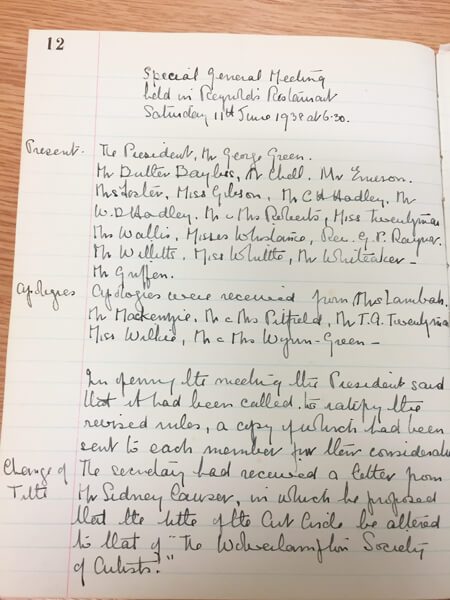 12
Special General Meeting
held in Reynolds Restaurant
Saturday 11th June 1938 at 6-30.
Present. The President, Mr George Green.
Mr Dutter Bayliss, Mr Chell. Mr Emerson.
Mrs Foster, Miss Gibson, Mr C H Hadley, Mr
W.D Hadley. Mr & Mrs Roberts, Miss Twentyman
Mrs Wallis, Misses Whistance, Rev. G. P. Raynor.
Mr Willetts, Miss Whittle, Mr Whiteaker -
Mr Griffen.
Apologies Apologies were received from Mrs Lambah.
Mr Mackenzie, Mr & Mrs Pitfield, Mr T.A. Twentyma
Miss Wyllie, Mr & Mrs Wynn-Green -
In opening the meeting the President said
that it had been called to ratify the
revised rules, a copy of which had been
sent to each member for their considerati
Change of Title The secretary had received a letter from
Mr Sidney Causer, in which he proposed
that the title of the Art Circle be altered
to that of "The Wolverhampton Society
of Artists."